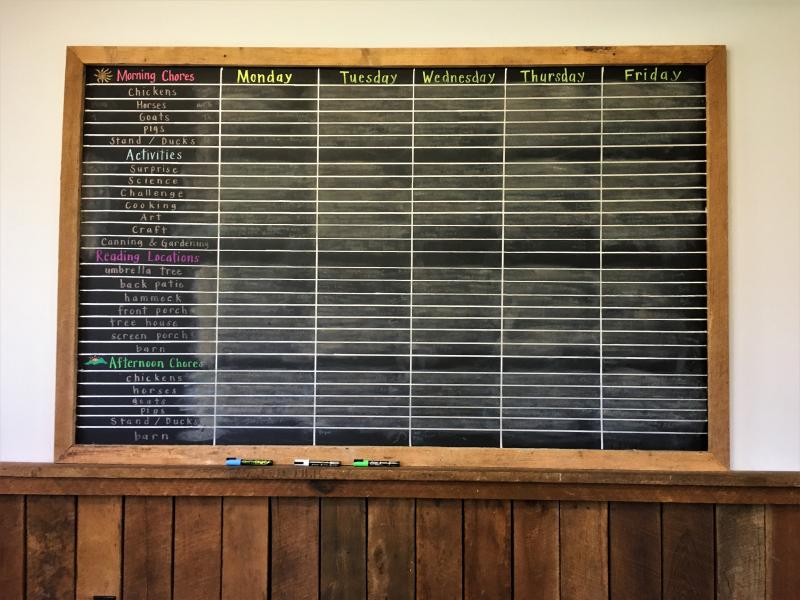 Morning Chores Monday Tuesday Wednesday Thursday Friday
Chickens
Horses
Goats
pigs
Stand / Ducks
Activities
Surprise
Science
Challenge
Cooking
Art
Craft
Canning & Gardening
Reading Locations
umbrella tree
back patio
hammock
front porch
tree house
screen porch
barn
Afternoon Chores
chickens
horses
goats
pigs
Stand / Ducks
barn